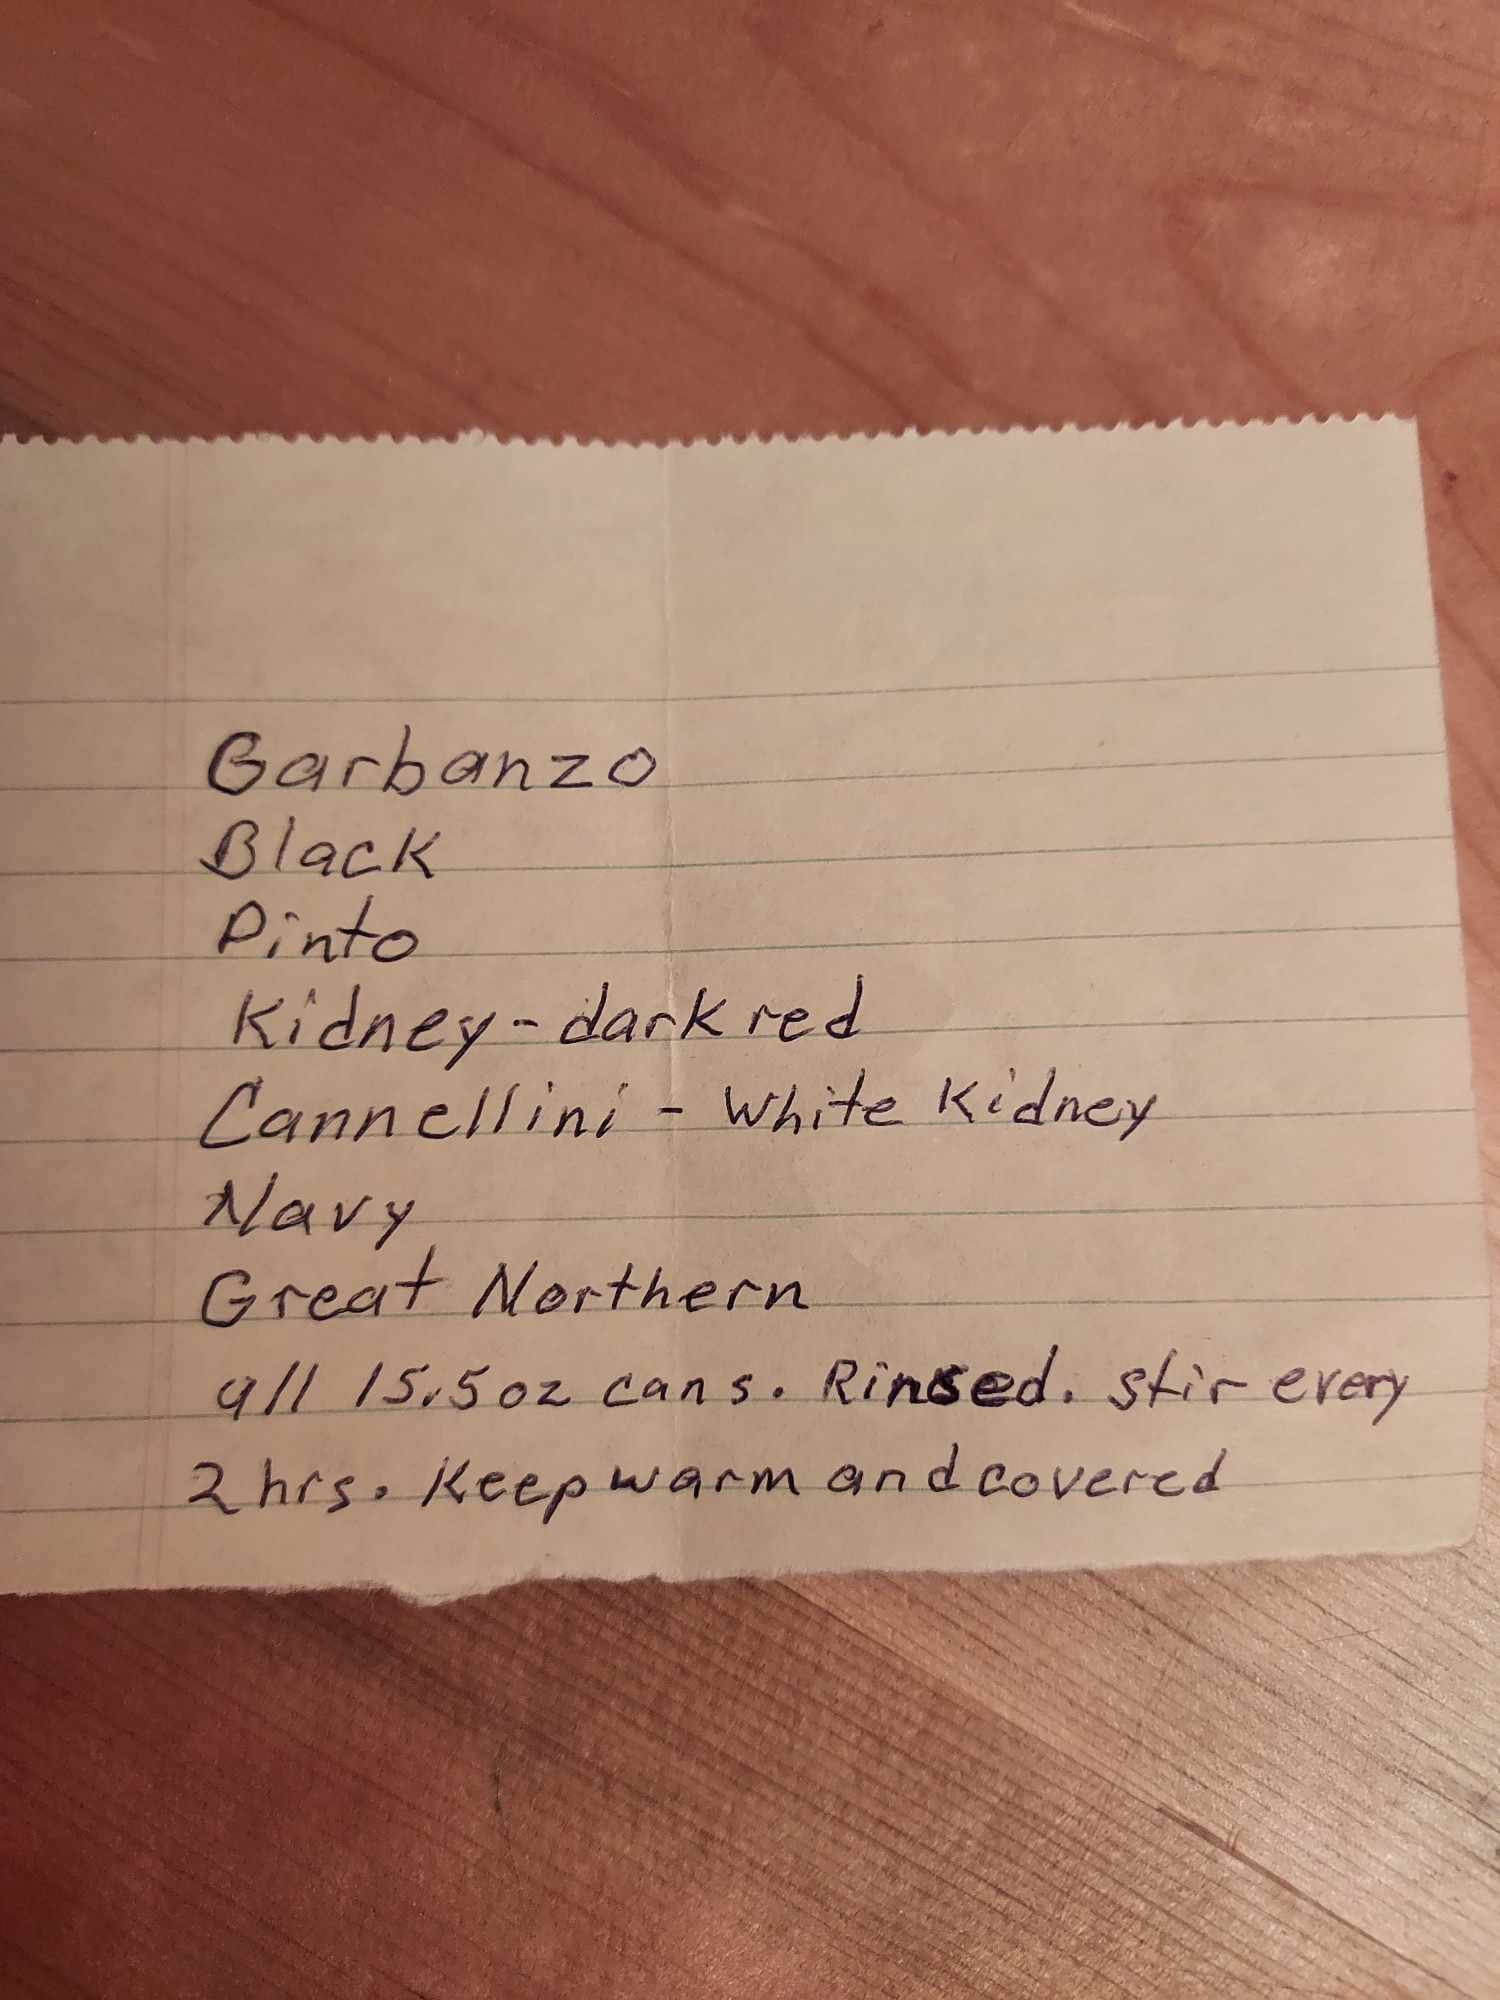 Garbanzo
Black
Pinto
Kidney - dark red
Cannellini - White Kidney
Navy
Great Northern
all 15.5oz cans. Rinsed. stir every
2 hrs. Keep warm and covered